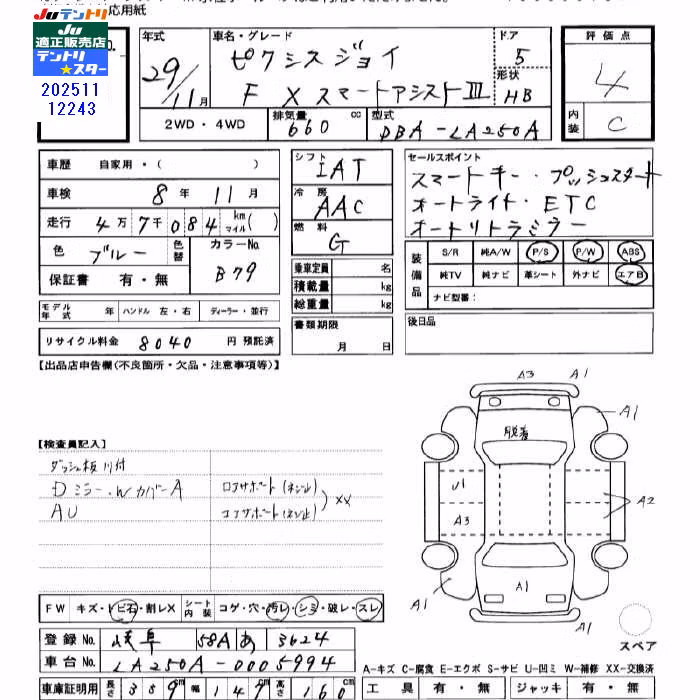 JUテントリ
JU
適正販売店
テントリ
★スター
応用紙
No.
202511
12243
年式 車名・グレード ドア 評価点
29/11月 ピクシスジョイ 5
F X スマートアシストⅢ 形状 HB 4
2WD・4WD 排気量 660 cc 型式 DBA-LA250A 内装 C
車歴 自家用・( )
車検 8年 11月
走行 4万7千084 km マイル( )
色 ブルー 色替 カラーNo. B79
保証書 有・無
モデル年式 年 ハンドル 左・右 ディーラー・並行
リサイクル料金 8040 円 預託済
シフト IAT
冷房 AAC
燃料 G
乗車定員 名
積載量 kg
総重量 kg
書類期限
月 日
セールスポイント
スマートキー・プッシュスタート
オートライト・ETC
オートリトラミラー
装備品 S/R 純A/W P/S P/W ABS
純TV 純ナビ 革シート 外ナビ エアB
ナビ型番:
後日品
【出品店申告欄(不良箇所・欠品・注意事項等)】
【検査員記入】
ダッシュ板 川付
Dミラー・WカバーA
AU
ロアサポート(ネジ止)
コアサポート(ネジ止)
XX
FW キズ・トビ石・割レX シート内装 コゲ・穴・汚レ・シミ・破レ・スレ
登録No. 岐阜 58A あ 3624
車台No. LA250A-0005994
車庫証明用 長さ 359cm 幅 147cm 高さ 160cm
A3 A1
A1
脱着
U1
A3
A2
A1
A1
A1
スペア
A-キズ C-腐食 E-エクボ S-サビ U-凹ミ W-補修 XX-交換済
工具 有・無 ジャッキ 有・無